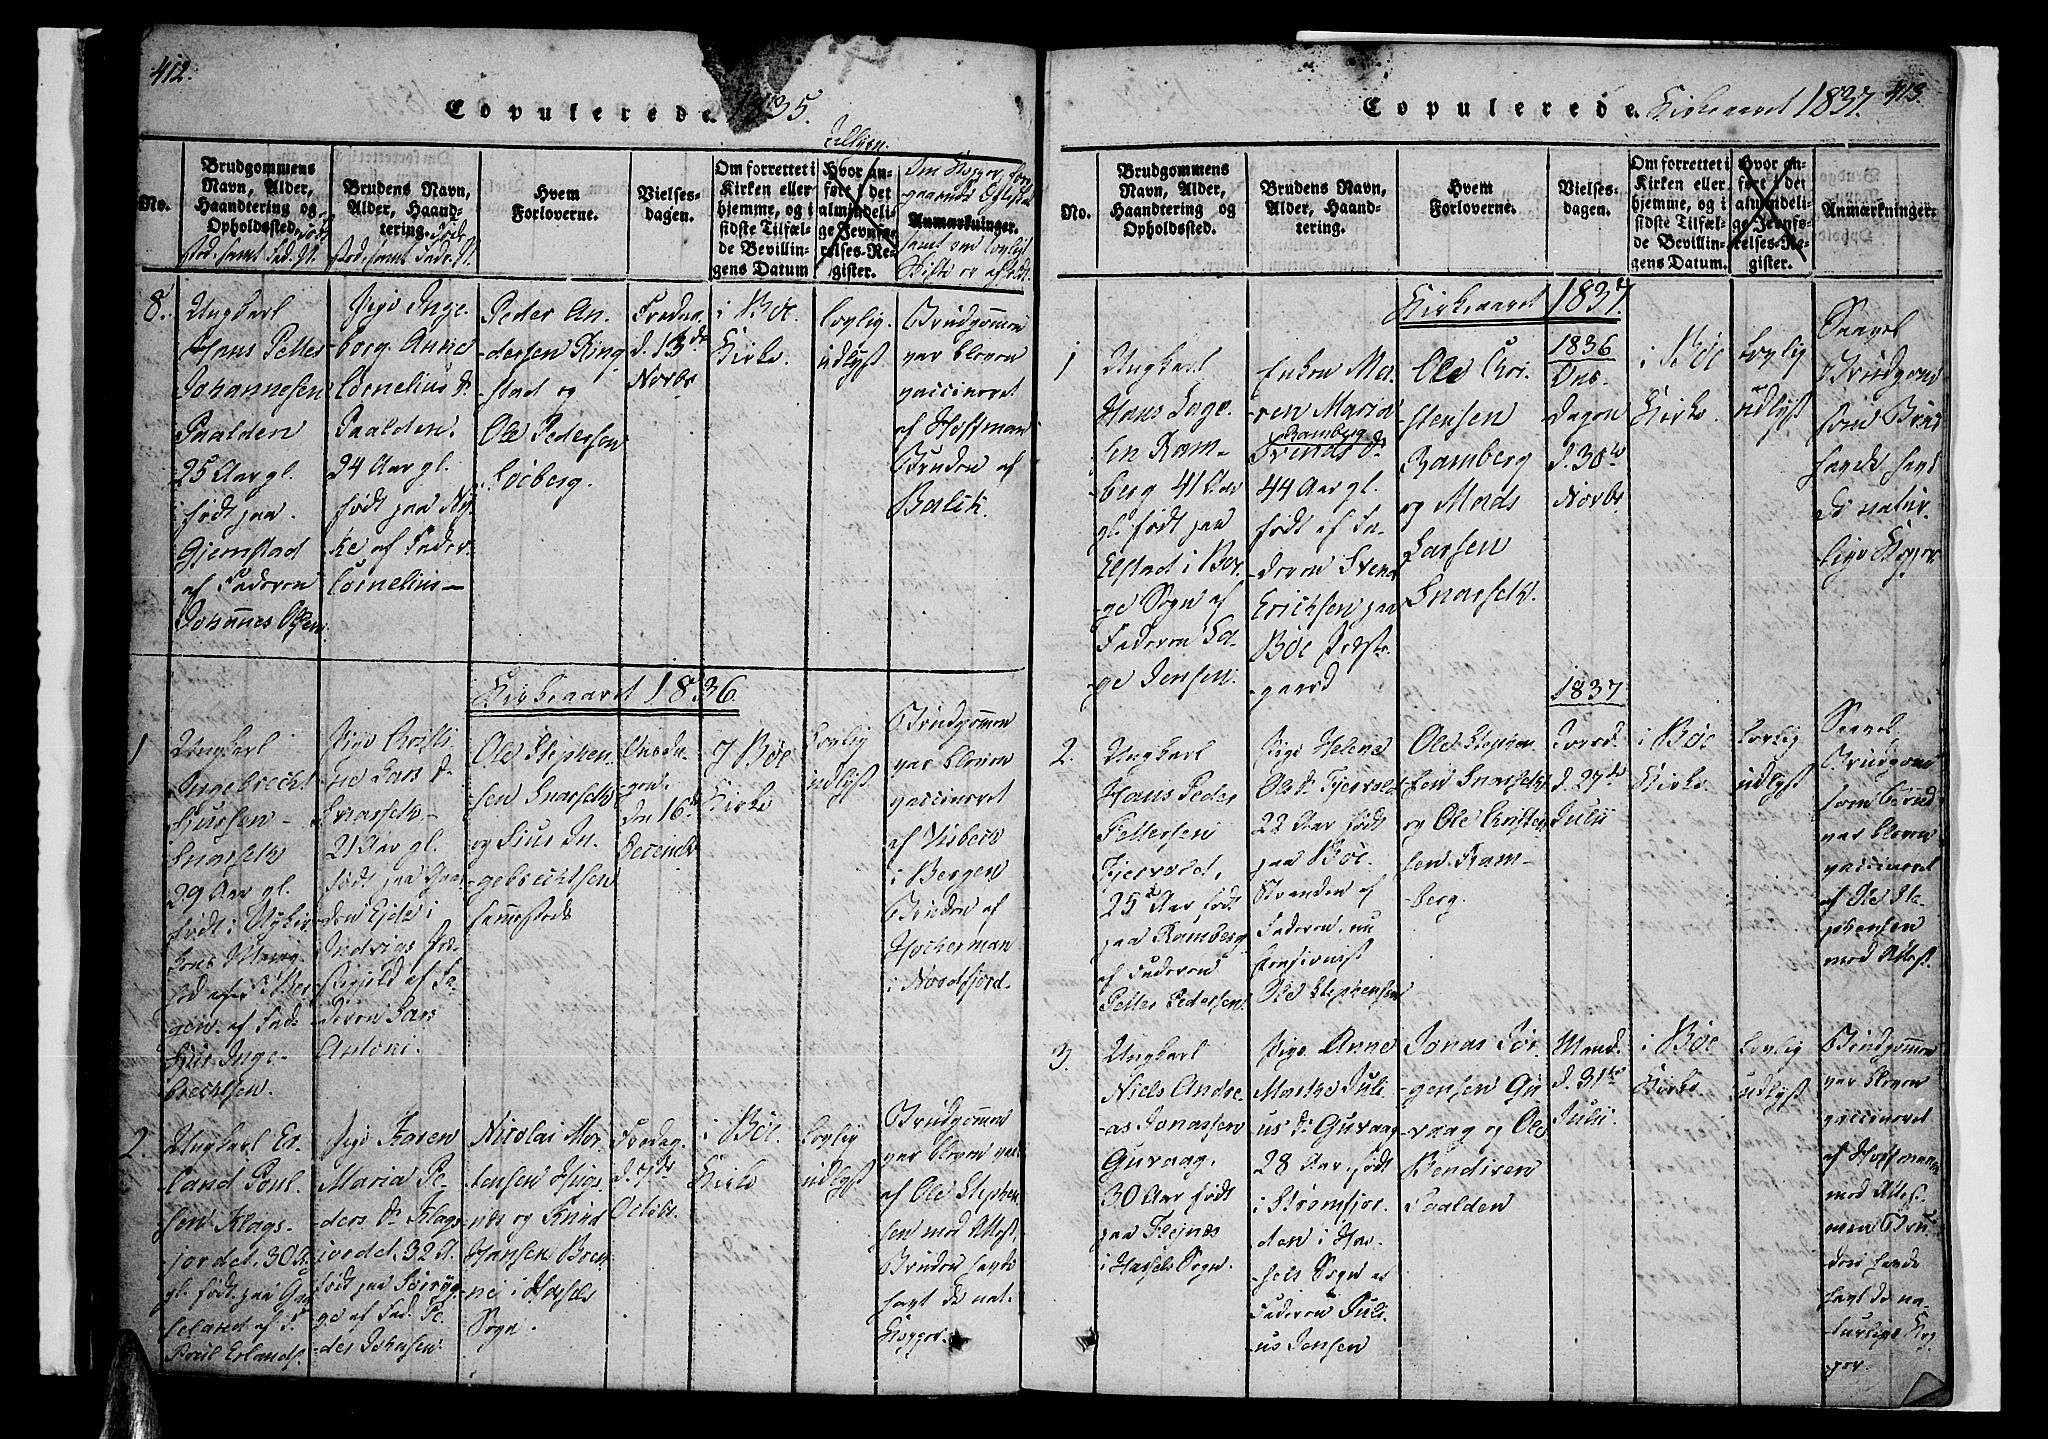 412.
Copulerede. 1835.
No.
Brudgommens
Navn, Alder,
Haandtering og
Opholdssted,
Brudens Navn,
Alder, Haand-
tering.
Hvem
Forloverne.
Vielses-
dagen.
Om forrettet i
Kirken eller
hjemme, og i
sidste Tilfæl-
de Bevillin-
gens Datum
Hvor an-
ført i det
almindeli-
ge Jevnfø-
relses-Re-
gister.
Anmærkninger.
8.
Ungkarl
Hans Petter
Johannesen
Paalden
25 Aar gl.
født paa
Gjemstad
af Faderen
Johannes Olsen
Pige Inge-
borg Anne
Cornelius D.
Paalden.
24 Aar gl.
født paa Ny-
ke af Fader
Cornelius
Peder An-
dersen Ring-
stad og
Ole Pedersen
Løeberg.
Fredag
d. 13de
Novbr
i Bøe
Kirke.
Lovlig
udlyst
Brudgommen
var bleven
vaccineret
af Hoffman
Bruden af
Balch.
Kirkeaaret 1836
1
Ungkarl
Ingebrecht
Siursen
Snarseth
29 Aar gl.
Ingebrechtsen.
Pige Christi-
ne Lars D.
Snarseth
21 Aar gl.
født paa
af Fa-
deren Lars
Antoni.
Ole Stephen-
sen Snarseth
og Siur In-
gebrechtsen
sammesteds
Onsda-
gen
den 16de
Decembr
I Bøe
Kirke
Lovlig
udlyst
Brudgommen
var bleven
vaccineret
af Visberg
i Bergen
Bruden af
Hockerman
i Nordfjord.
2.
Ungkarl Er-
land Poul-
sen Klags-
jordet, 30 A
gl. født paa
af F.
Poul Erlands.
Pige Karen
Maria Pe-
ders D. Klags-
jordet, 32 A.
født paa
af Fad. Pe-
der Johnsen.
Nicolai Mor-
tensen
og Knud
Hansen
i Hassels
Sogn.
Fredag
d. 7de
Octobr.
i Bøe
Kirke
Lovlig
udlyst
Brudgommen
var bleven vac
af Ole Stephen-
sen med Attest
Bruden havde
havt de nat.
Kopper.
413.
Copulerede. Kirkeaaret 1837.
No.
Brudgommens
Navn, Alder,
Haandtering og
Opholdssted.
Brudens Navn,
Alder, Haand-
tering.
Hvem
Forloverne.
Vielses-
dagen.
Om forrettet i
Kirken eller
hjemme, og i
sidste Tilfæl-
de Bevillin-
gens Datum.
Hvor an-
ført i det
almindeli-
ge Jevnfø-
relses-Re-
gister.
Anmærkninger.
Kirkeaaret 1837.
1
Ungkarl
Hans Lage-
sen Ram-
berg 41 Aar
gl. født paa
Elstad i Bor-
ge Sogn af
Faderen La-
ge Jensen.
Enken Ma-
ren Maria
Ramberg
Svends D.
44 Aar gl.
født af Fa-
deren Svend
Erichsen paa
Bøe Præste-
gaard
Ole Chri-
stensen
Ramberg
og Mads
Larsen
Snarseth.
1836
Ons-
dagen
d. 30te
Novbr
i Bøe
Kirke
Lovlig
udlyst
Saavel
Brudgom
som Brud
havde havt
de natur-
lige Kopper
2.
Ungkarl
Hans Peder
Pettersen
Fjervold,
25 Aar født
paa Ramberg
af Faderen
Petter Pedersen
Pige Helene
Ols D. Fjervold
22 Aar født
paa Bøe-
Stranden af
Faderen, nu
Ole Stephensen
Ole Stephen-
sen Snarseth
og Ole Christen-
sen Ram-
berg.
1837
Torsd.
d. 27de
Julii
i Bøe
Kirke
Lovlig
udlyst
Saavel
Brudgom
som Brud
var bleven
vaccineret
af Ole Ste-
phensen
med Attest
3.
Ungkarl
Niels Andre-
as Jonassen
Guvaag,
30 Aar født
paa
i Hassels Sogn.
Pige Anne
Marthe Juli-
us D. Guvaag
28 Aar, født
i Strømfjor-
den i Has-
sels Sogn af
Faderen Juli-
us Jensen
Jonas Jør-
gensen Gu-
vaag og Ole
Bendixen
Paalden
Mand.
d. 31te
Julii
i Bøe
Kirke
Lovlig
udlyst
Brudgommen
var bleven
vaccineret
af Hoffmann
med Attest
men Bru-
den havde
havt de na-
turlige Kop-
per.